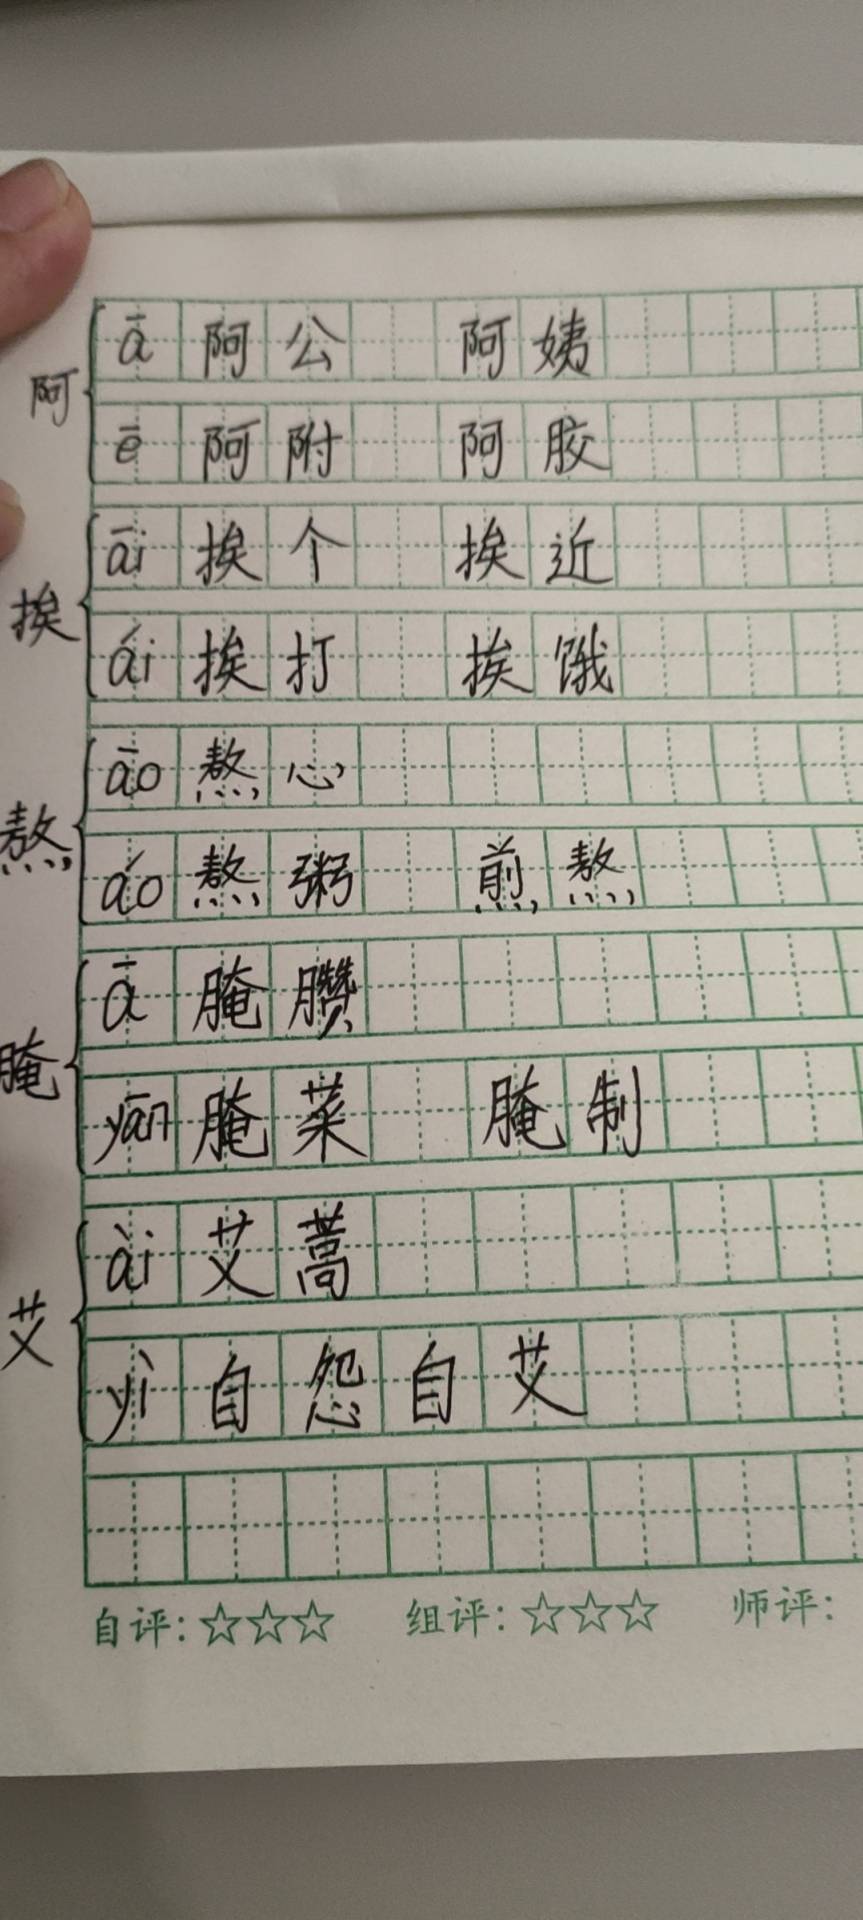 阿
ā 阿公 阿姨
ē 阿附 阿胶
挨
āi 挨个 挨近
ái 挨打 挨饿
熬
āo 熬心
áo 熬粥 煎熬
腌
ā 腌臜
yān 腌菜 腌制
艾
ài 艾蒿
yì 自怨自艾
自评：☆☆☆ 组评：☆☆☆ 师评：